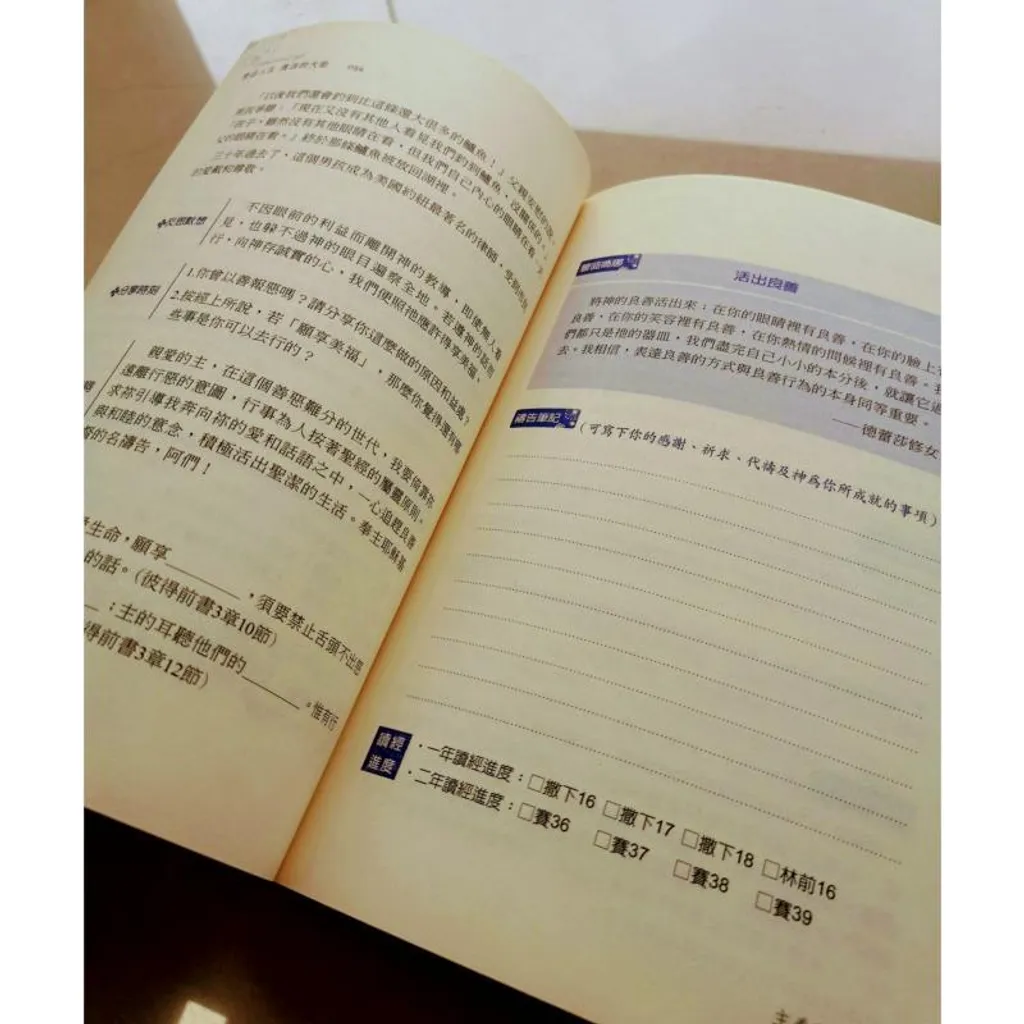 「以後我們還會釣到比這條還大很多的鱸魚！」父親安慰的說。
男孩爭辯：「現在又沒有其他人看見我們釣到鱸魚，沒關係的。」
「孩子，雖然沒有其他眼睛在看，但我們自己內心的眼睛在看，天
父的眼睛在看。」終於那條鱸魚被放回湖裡。
三十年過去了，這個男孩成為美國約紐最著名的律師，受到市民
的愛戴和尊敬。
反思默想
不因眼前的利益而離開神的教導，即使無人看
見，也躲不過神的眼目遍察全地。若遵神的話而
行，向神存誠實的心，我們便照他應許得享美福。
分享時刻
1.你曾以善報惡嗎？請分享你這麼做的原因和益處？
2.按經上所說，若「願享美福」，那麼你覺得還有哪
些事是你可以去行的？
親愛的主，在這個善惡難分的世代，我要倚靠你
遠離行惡的意圖，行事為人按著聖經的屬靈原則。
求祢引導我奔向祢的愛和話語之中，一心追趕良善
與和睦的意念，積極活出聖潔的生活。奉主耶穌基
督的名禱告，阿們！
生命，願享______，須要禁止舌頭不出惡
的話。（彼得前書3章10節）
______；主的耳聽他們的______。惟有行
得前書3章12節）
活出良善
將神的良善活出來：在你的眼睛裡有良善，在你的臉上有
良善，在你的笑容裡有良善，在你熱情的問候裡有良善。我
們都只是祂的器皿，我們盡完自己小小的本分後，就讓它過
去。我相信，表達良善的方式與良善行為的本身同等重要。
——德蕾莎修女
禱告筆記 （可寫下你的感謝、祈求、代禱及神為你所成就的事項）
讀經
進度
・一年讀經進度：□撒下16 □撒下17 □撒下18 □林前16
・二年讀經進度：□賽36 □賽37 □賽38 □賽39